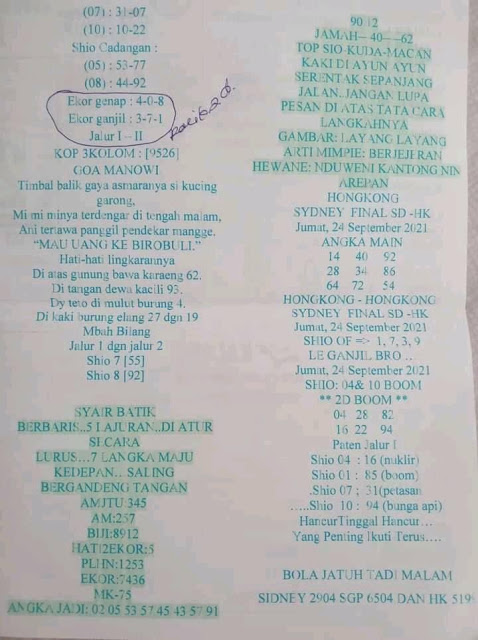 (07) : 31-07
(10) : 10-22
Shio Cadangan :
(05) : 53-77
(08) : 44-92
Ekor genap : 4-0-8
Ekor ganjil : 3-7-1
Jalur I - II
KOP 3KOLOM : [9526]
GOA MANOWI
Timbal balik gaya asmaranya si kucing
garong,
Mi mi minya terdengar di tengah malam,
Ani tertawa panggil pendekar mangge.
“MAU UANG KE BIROBULI.”
Hati-hati lingkarannya
Di atas gunung bawa karaeng 62.
Di tangan dewa kacili 93.
Dy teto di mulut burung 4.
Di kaki burung elang 27 dgn 19
Mbah Bilang
Jalur 1 dgn jalur 2
Shio 7 [55]
Shio 8 [92]
SYAIR BATIK
BERBARIS..5 LAJURAN..DI ATUR
SI CARA
LURUS...7 LANGKA MAJU
KEDEPAN... SALING
BERGANDENG TANGAN
AMJTU:345
AM:257
BIJI:8912
HATI2EKOR:5
PLHN:1253
EKOR:7436
MK-75
ANGKA JADI: 02 05 53 57 45 43 57 91
90 12
JAMAH-- 40---62
TOP SIO-KUDA-MACAN
KAKI DI AYUN AYUN
SERENTAK SEPANJANG
JALAN..JANGAN LUPA
PESAN DI ATAS TATA CARA
LANGKAHNYA
GAMBAR: LAYANG LAYANG
ARTI MIMPIE: BERJEJERAN
HEWANE: NDUWENI KANTONG NIN
AREPAN
HONGKONG
SYDNEY FINAL SD -HK
Jumat, 24 September 2021
ANGKA MAIN
14 40 92
28 34 86
64 72 54
HONGKONG - HONGKONG
SYDNEY FINAL SD -HK
Jumat, 24 September 2021
SHIO OF => 1, 7, 3, 9
LE GANJIL BRO ..
Jumat, 24 September 2021
SHIO: 04& 10 BOOM
** 2D BOOM **
04 28 82
16 22 94
Paten Jalur I
Shio 04 : 16 (nuklir)
Shio 01 : 85 (boom)
.Shio 07 ; 31(petasan
.....Shio 10 : 94 (bunga api)
HancurTinggal Hancur....
Yang Penting Ikuti Terus....
BOLA JATUH TADI MALAM
SIDNEY 2904 SGP 6504 DAN HK 519